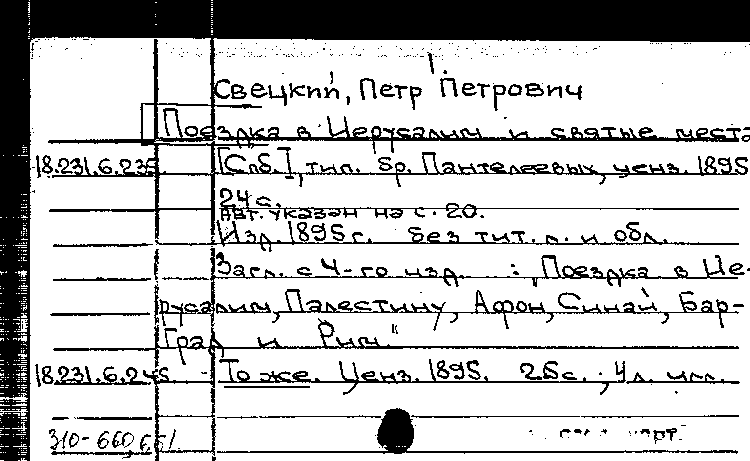 Свецкий, Петр Петрович
Поездка в Иерусалим и святые места
18.231.6.235. [Спб.], тип. бр. Пантелеевых, ценз. 1895
24 с.
Авт. указан на с. 20.
Изд. 1895 г. без тит. л. и обл.
Загл. с 4-го изд. : „Поездка в Ие-
русалим, Палестину, Афон, Синай, Бар-
Град и Рим."
18.231.6.245. - То же. Ценз. 1895. 25 с.; 4 л. илл.
310-660,661